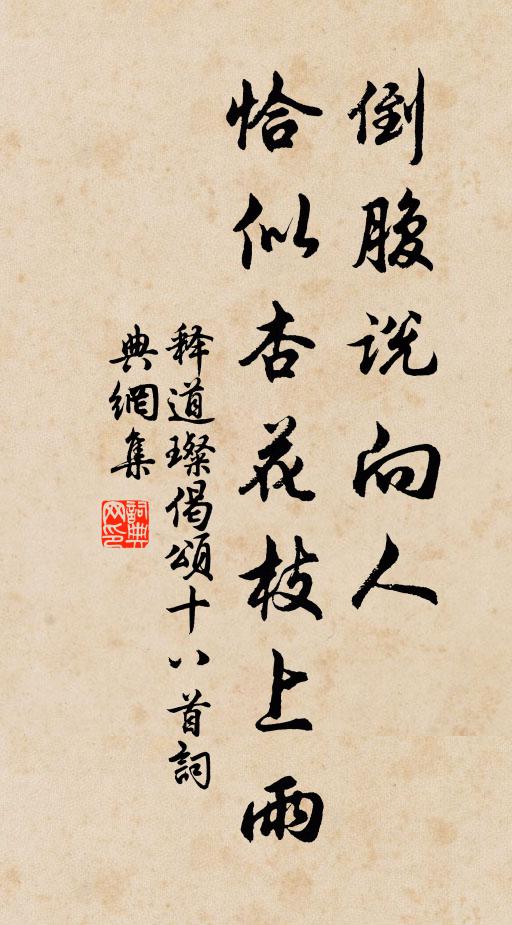 倒腹说向人
恰似杏花枝上雨
释道璨偈颂十八首詞
典網集
詞典網印